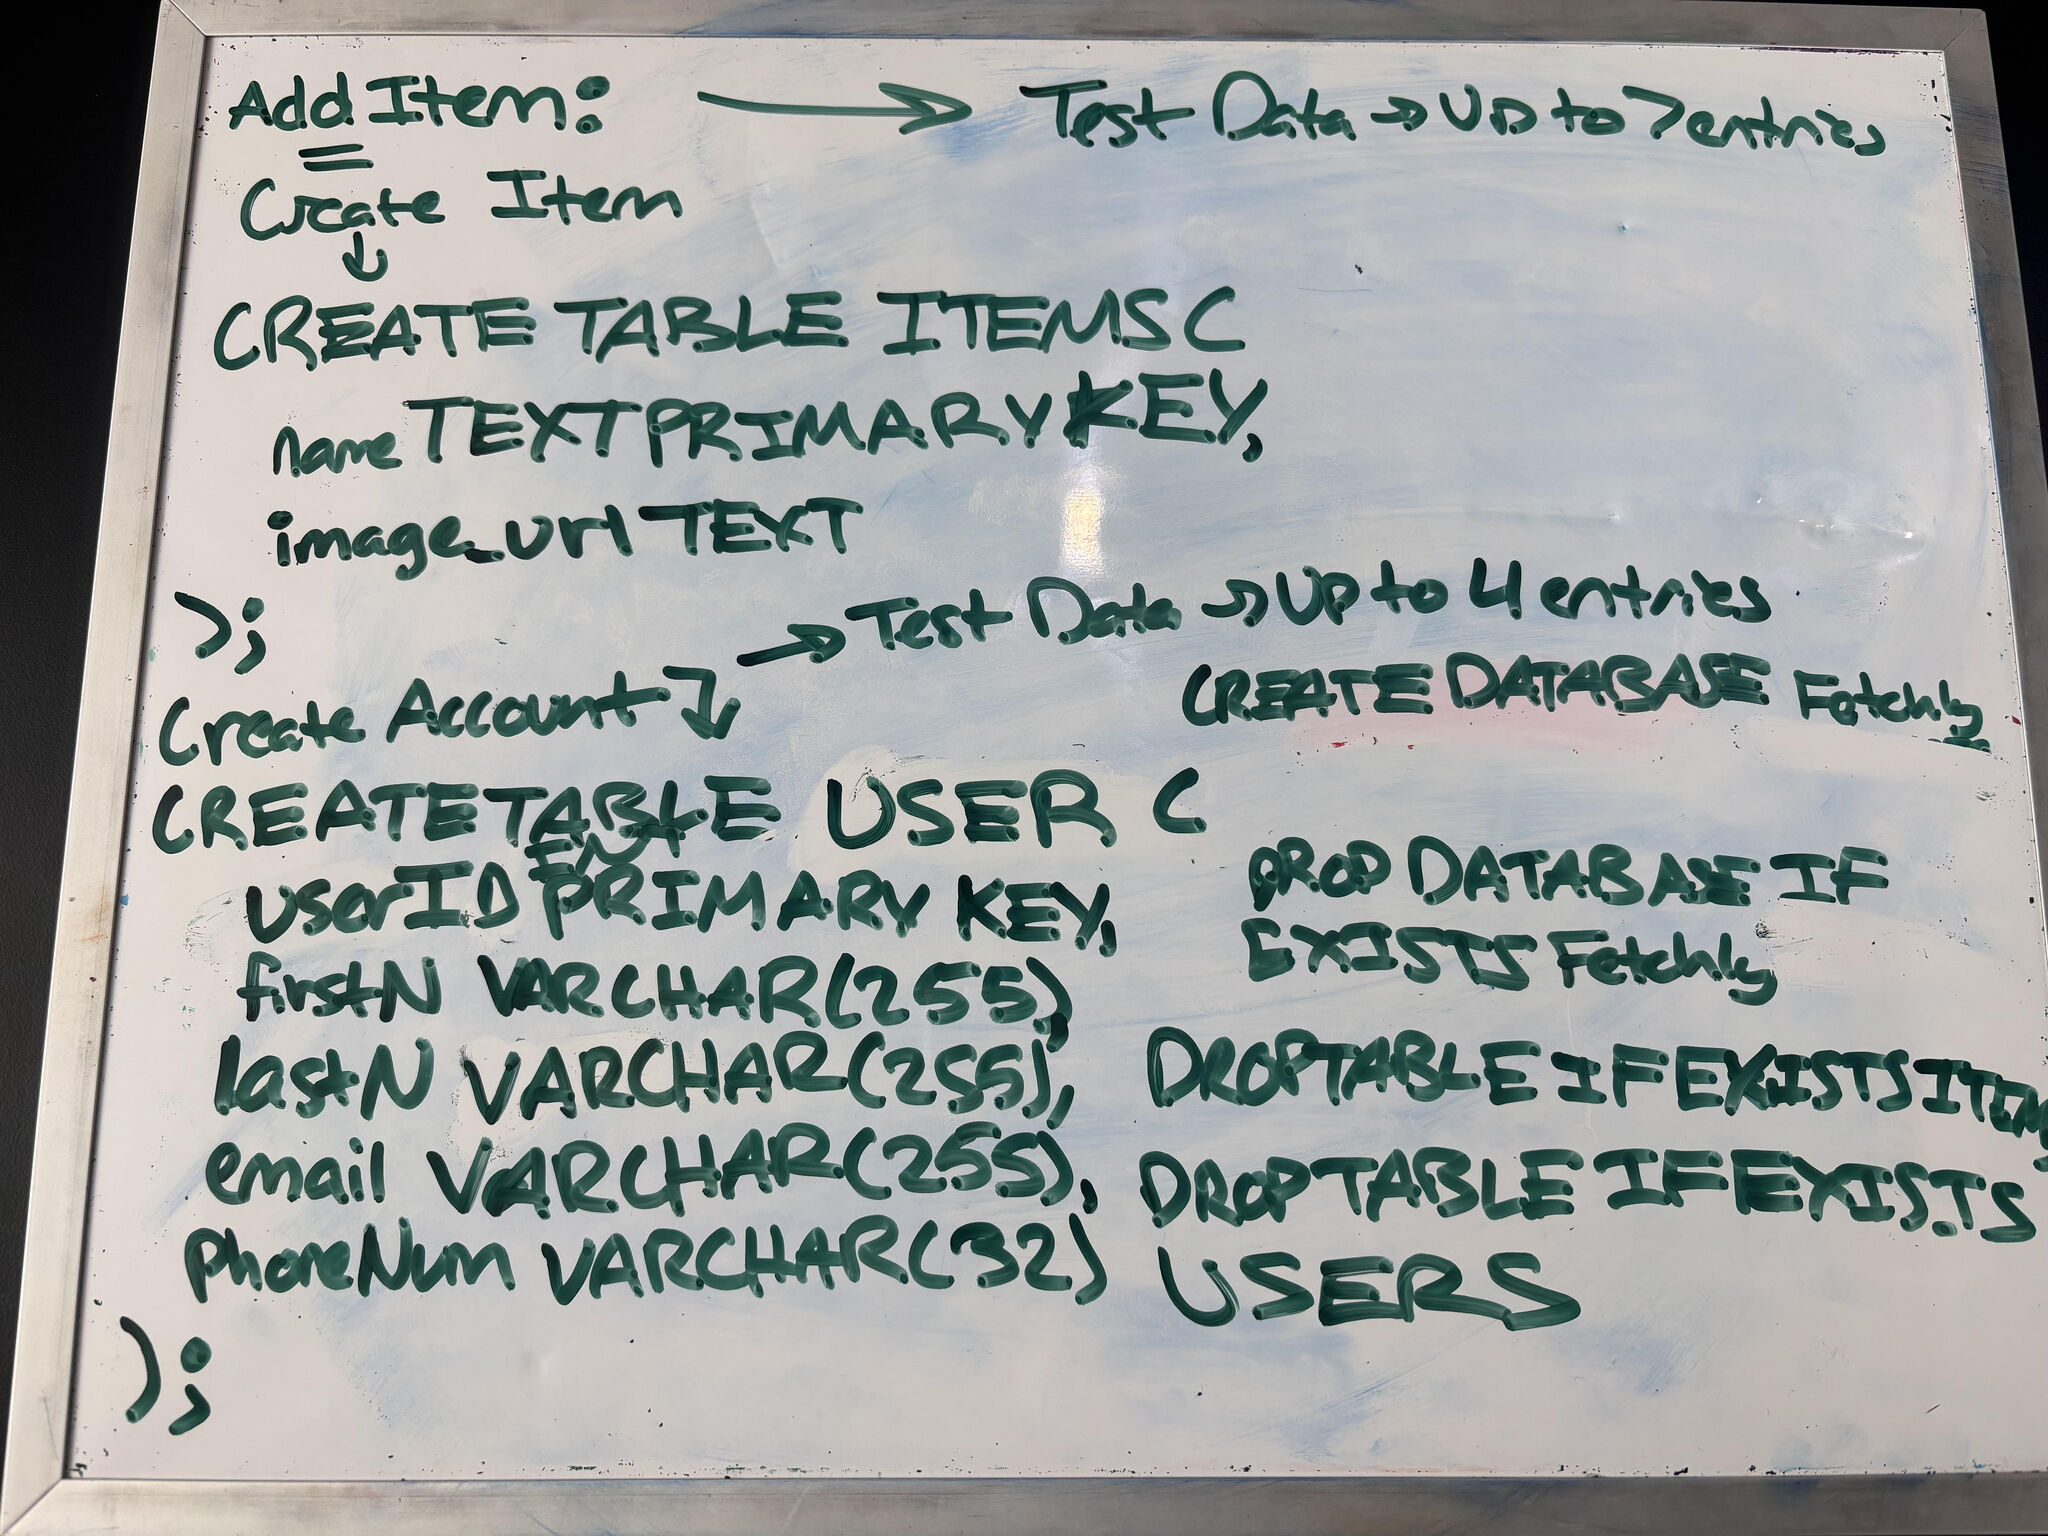 Add Item: → Test Data → Up to 7 entries
=
Create Item
↓
CREATE TABLE ITEMS (
name TEXT PRIMARY KEY,
image_url TEXT
);
→ Test Data → Up to 4 entries
Create Account ↓
CREATE TABLE USER (
userID INT PRIMARY KEY,
firstN VARCHAR(255),
lastN VARCHAR(255),
email VARCHAR(255),
phoneNum VARCHAR(32)
);
CREATE DATABASE Fetchly
DROP DATABASE IF
EXISTS Fetchly
DROP TABLE IF EXISTS ITEMS
DROP TABLE IF EXISTS
USERS